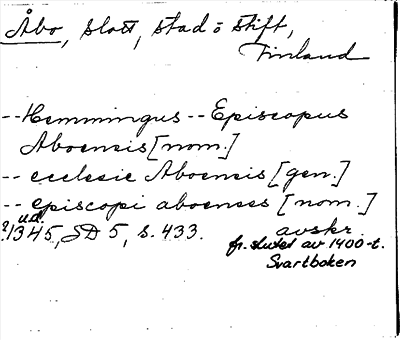 Åbo, slott, stad o stift,
Finland
-- Hemmingus -- Episcopus
Aboensis [nom.]
-- ecclesie Aboensis [gen.]
-- episcopi aboenses [nom.]
u.d.
?1345, SD 5, s. 433. avskr.
fr. slutet av 1400-t.
Svartboken